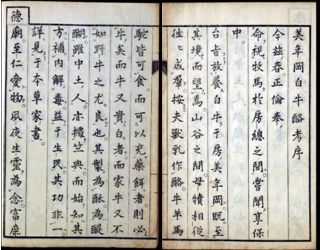 美年岡白牛酪考序
今茲春正倫奉
命視牧馬於房總之間嘗聞享保
中
台旨放養白牛于房美年岡既至
其境而望焉山谷之間牸犢相從
往々成羣按夫獸乳作酪牛羊馬
駝皆可食而可以充藥餌者則必
牛矣而牛又貴白者而家牛又不
如野牛之尤良也其製為酥為醍
醐雖中土人亦竺興而始知其
方補內解毒益于生民其功非一
詳見于本草家
德廟至仁愛物夙夜生靈為念富庶